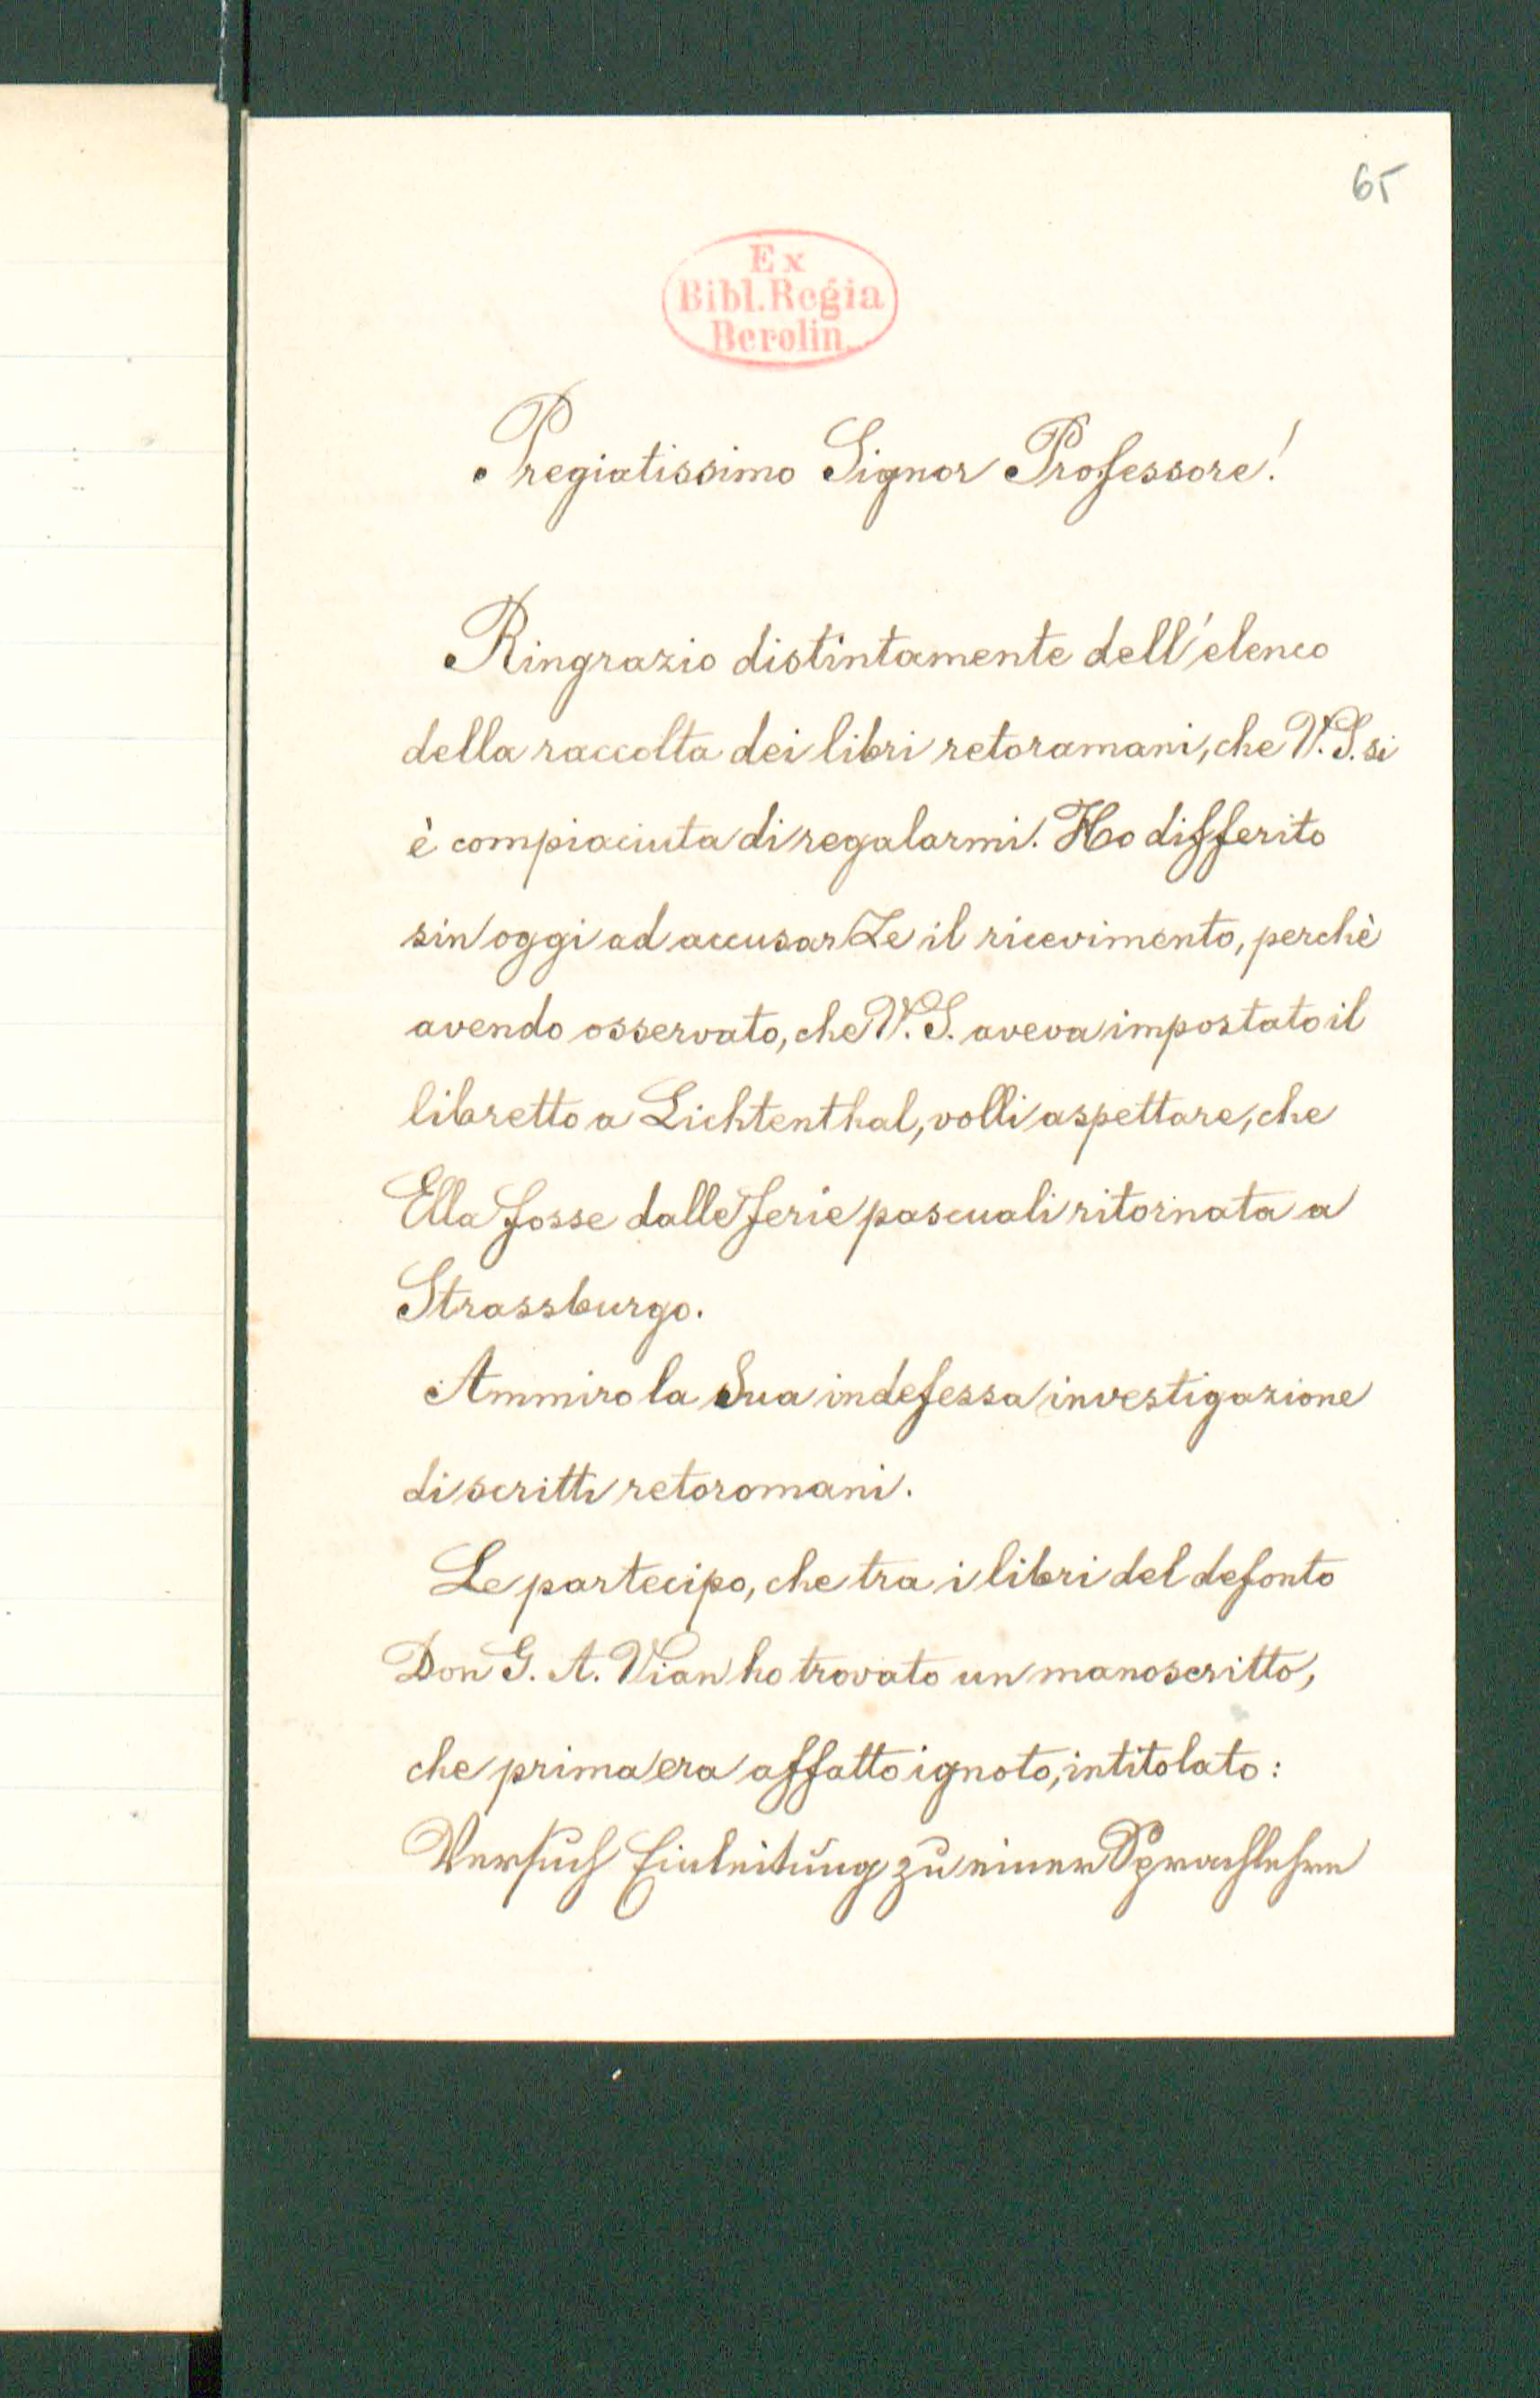 65
Ex
Bibl. Regia
Berolin.
Pregiatissimo Signor Professore!
Ringrazio distintamente dell'elenco
della raccolta dei libri retoramani, che V. S. si
è compiaciuta di regalarmi. Ho differito
sin oggi ad accusar Le il ricevimento, perchè
avendo osservato, che V. S. aveva impostato il
libretto a Lichtenthal, volli aspettare, che
Ella fosse dalle ferie pascuali ritornata a
Strassburgo.
Ammiro la Sua indefessa investigazione
di scritti retoromani.
Le partecipo, che tra i libri del defonto
Don G. A. Vian ho trovato un manoscritto,
che prima era affatto ignoto, intitolato:
Versuch Einleitung zu einer Sprachlehre